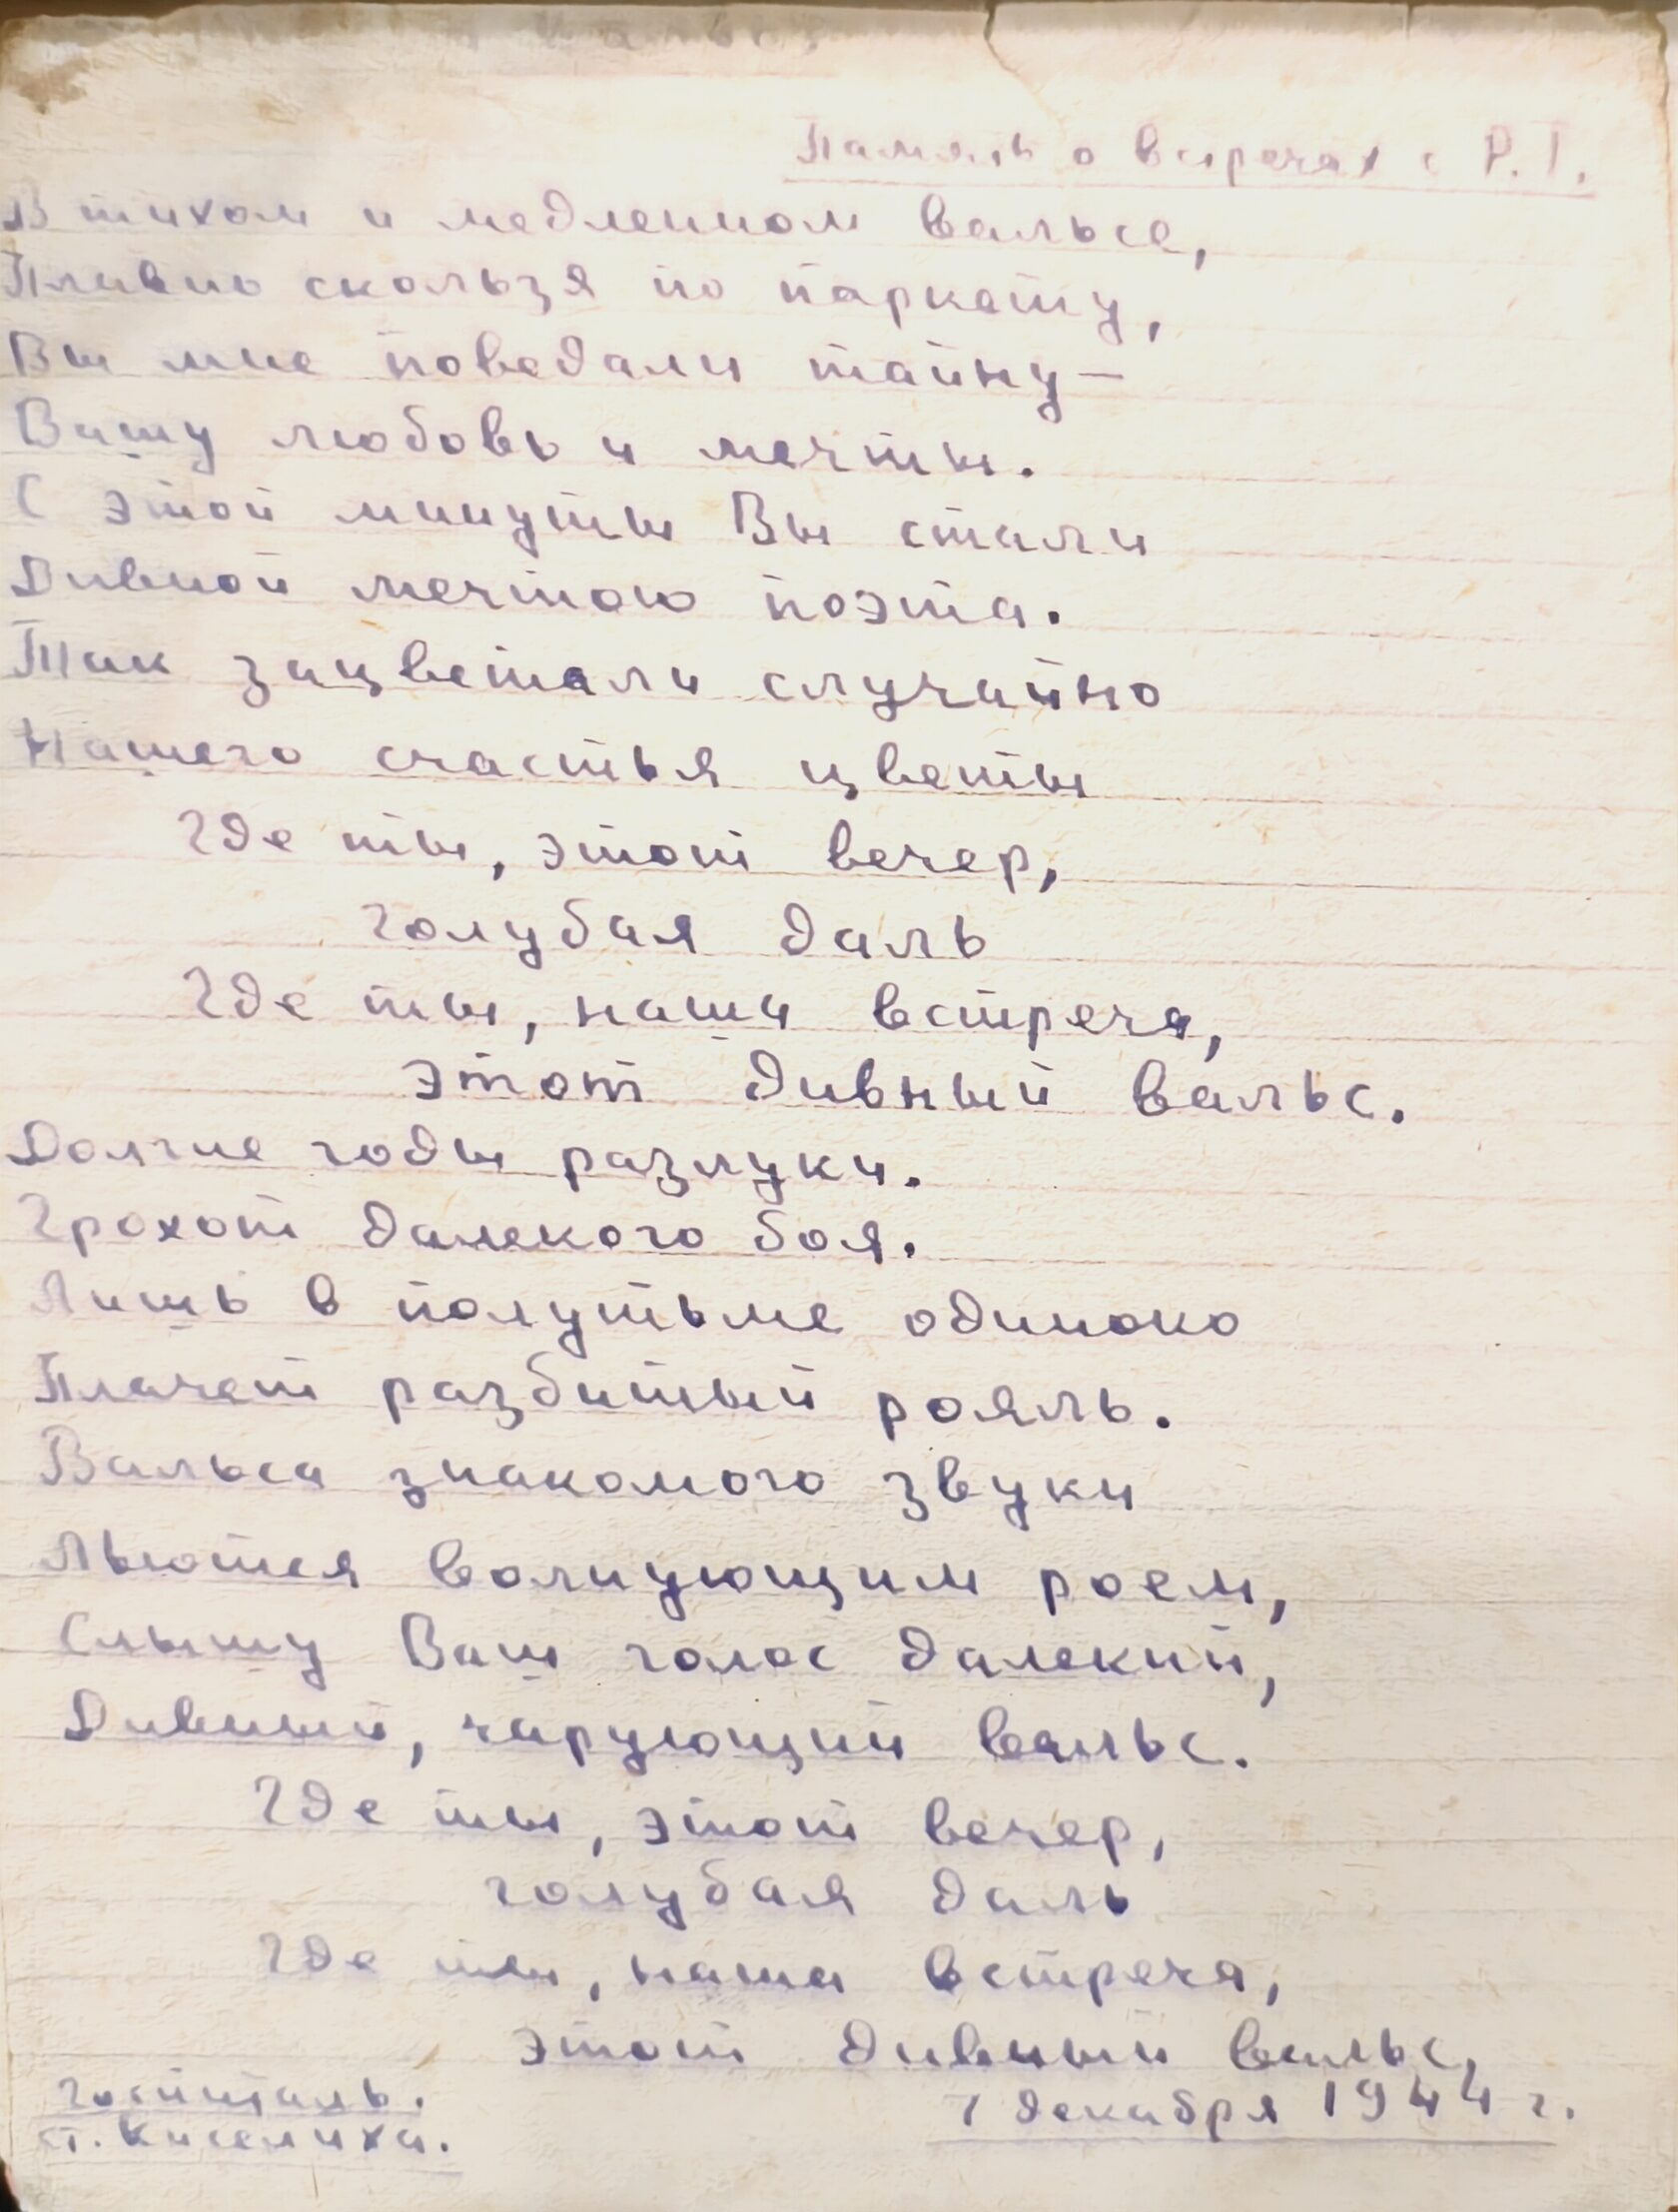 Память о встречах с Р. Г.
В тихом и медленном вальсе,
Плавно скользя по паркету,
Вы мне поведали тайну —
Вашу любовь и мечты.
С этой минуты Вы стали
Дивной мечтою поэта.
Так зацветали случайно
Нашего счастья цветы
Где ты, этот вечер,
голубая даль
Где ты, наша встреча,
этот дивный вальс.
Долгие годы разлуки.
Грохот далекого боя.
Лишь в полутьме одиноко
Плачет разбитый рояль.
Вальса знакомого звуки
Льются волнующим роем,
Слышу Ваш голос далекий,
Дивный, чарующий вальс.
Где ты, этот вечер,
голубая даль
Где ты, наша встреча,
этот дивный вальс,
госпиталь.
7 декабря 1944 г.
ст. Киселиха.